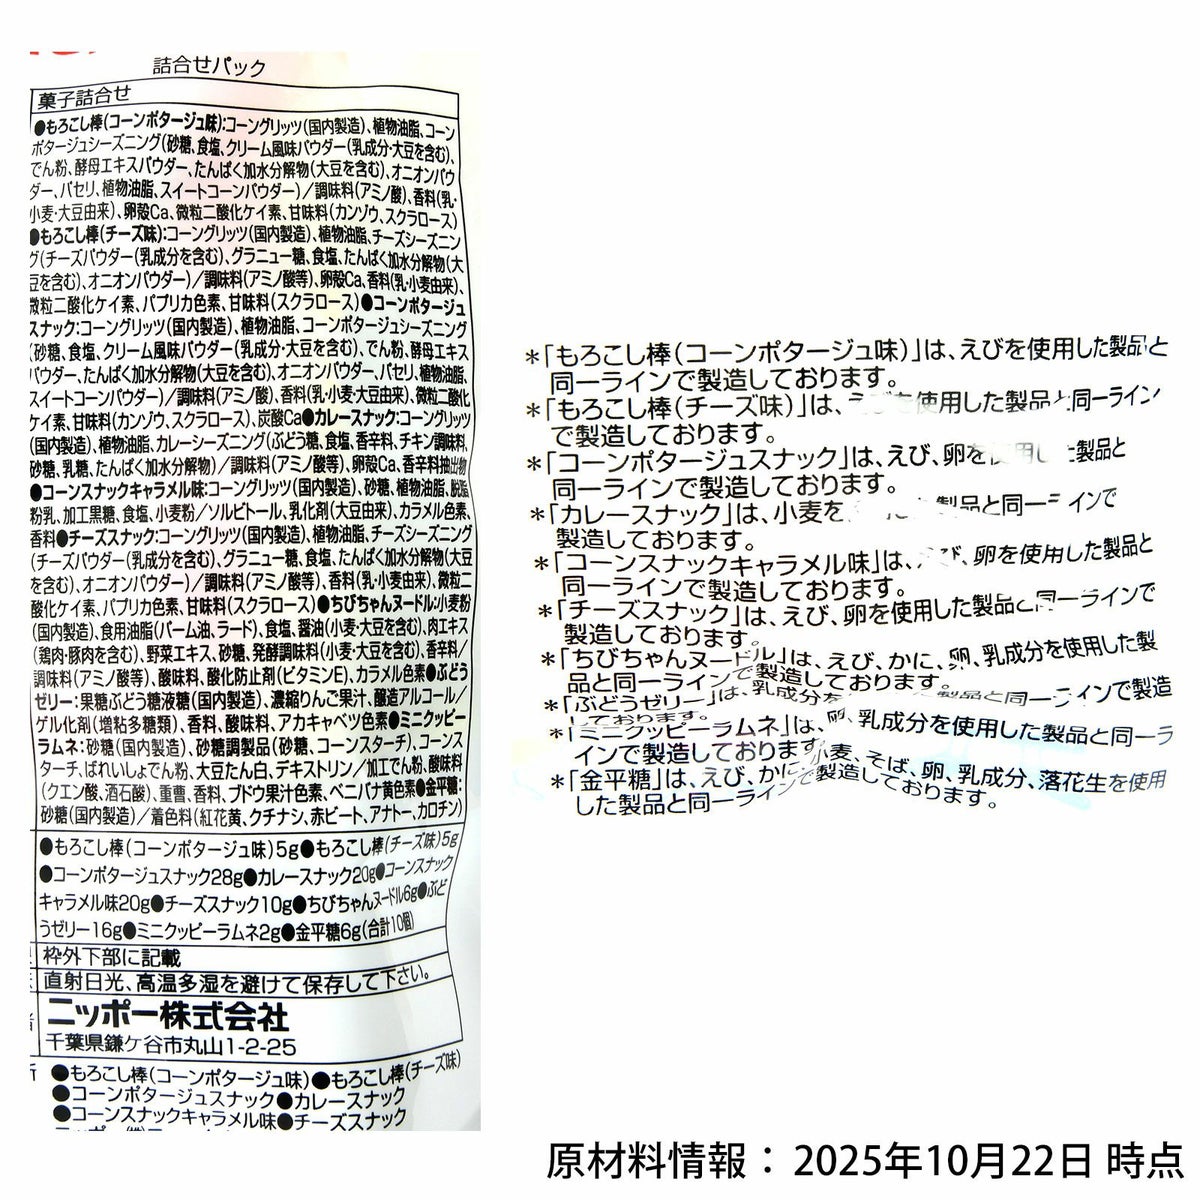 詰合せパック
菓子詰合せ
●もろこし棒(コーンポタージュ味):コーングリッツ(国内製造)、植物油脂、コーン
ポタージュシーズニング(砂糖、食塩、クリーム風味パウダー(乳成分・大豆を含む)、
でん粉、酵母エキスパウダー、たんぱく加水分解物(大豆を含む)、オニオンパウ
ダー、パセリ、植物油脂、スイートコーンパウダー)／調味料(アミノ酸)、香料(乳・
小麦・大豆由来)、卵殻Ca、微粒二酸化ケイ素、甘味料(カンゾウ、スクラロース)
●もろこし棒(チーズ味):コーングリッツ(国内製造)、植物油脂、チーズシーズニン
グ(チーズパウダー(乳成分を含む)、グラニュー糖、食塩、たんぱく加水分解物(大
豆を含む)、オニオンパウダー)／調味料(アミノ酸等)、卵殻Ca、香料(乳・小麦由来)、
微粒二酸化ケイ素、パプリカ色素、甘味料(スクラロース)●コーンポタージュ
スナック:コーングリッツ(国内製造)、植物油脂、コーンポタージュシーズニング
(砂糖、食塩、クリーム風味パウダー(乳成分・大豆を含む)、でん粉、酵母エキス
パウダー、たんぱく加水分解物(大豆を含む)、オニオンパウダー、パセリ、植物油脂、
スイートコーンパウダー)／調味料(アミノ酸)、香料(乳・小麦・大豆由来)、微粒二酸化
ケイ素、甘味料(カンゾウ、スクラロース)、炭酸Ca●カレースナック:コーングリッツ
(国内製造)、植物油脂、カレーシーズニング(ぶどう糖、食塩、香辛料、チキン調味料、
砂糖、乳糖、たんぱく加水分解物)／調味料(アミノ酸等)、卵殻Ca、香辛料抽出物
●コーンスナックキャラメル味:コーングリッツ(国内製造)、砂糖、植物油脂、脱脂
粉乳、加工黒糖、食塩、小麦粉／ソルビトール、乳化剤(大豆由来)、カラメル色素、
香料●チーズスナック:コーングリッツ(国内製造)、植物油脂、チーズシーズニング
(チーズパウダー(乳成分を含む)、グラニュー糖、食塩、たんぱく加水分解物(大豆
を含む)、オニオンパウダー)／調味料(アミノ酸等)、香料(乳・小麦由来)、微粒二
酸化ケイ素、パプリカ色素、甘味料(スクラロース)●ちびちゃんヌードル:小麦粉
(国内製造)、食用油脂(パーム油、ラード)、食塩、醤油(小麦・大豆を含む)、肉エキス
(鶏肉・豚肉を含む)、野菜エキス、砂糖、発酵調味料(小麦・大豆を含む)、香辛料／
調味料(アミノ酸等)、酸味料、酸化防止剤(ビタミンE)、カラメル色素●ぶどう
ゼリー:果糖ぶどう糖液糖(国内製造)、濃縮りんご果汁、醸造アルコール／
ゲル化剤(増粘多糖類)、香料、酸味料、アカキャベツ色素●ミニクッピー
ラムネ:砂糖(国内製造)、砂糖調製品(砂糖、コーンスターチ)、コーンス
ターチ、ばれいしょでん粉、大豆たん白、デキストリン／加工でん粉、酸味料
(クエン酸、酒石酸)、重曹、香料、ブドウ果汁色素、ベニバナ黄色素●金平糖:
砂糖(国内製造)／着色料(紅花黄、クチナシ、赤ビート、アナトー、カロチン)
●もろこし棒(コーンポタージュ味)5g●もろこし棒(チーズ味)5g
●コーンポタージュスナック28g●カレースナック20g●コーンスナック
キャラメル味20g●チーズスナック10g●ちびちゃんヌードル6g●ぶど
うゼリー16g●ミニクッピーラムネ2g●金平糖6g(合計10個)
枠外下部に記載
直射日光、高温多湿を避けて保存して下さい。
ニッポー株式会社
千葉県鎌ケ谷市丸山1-2-25
●もろこし棒(コーンポタージュ味)●もろこし棒(チーズ味)
●コーンポタージュスナック●カレースナック
●コーンスナックキャラメル味●チーズスナック
＊「もろこし棒(コーンポタージュ味)」は、えびを使用した製品と
同一ラインで製造しております。
＊「もろこし棒(チーズ味)」は、えびを使用した製品と同一ライン
で製造しております。
＊「コーンポタージュスナック」は、えび、卵を使用した製品と
同一ラインで製造しております。
＊「カレースナック」は、小麦を 製品と同一ラインで
製造しております。
＊「コーンスナックキャラメル味」は、えび、卵を使用した製品と
同一ラインで製造しております。
＊「チーズスナック」は、えび、卵を使用した製品と同一ラインで
製造しております。
＊「ちびちゃんヌードル」は、えび、かに、卵、乳成分を使用した製
品と同一ラインで製造しております。
＊「ぶどうゼリー」は、乳成分を 製品と同一ラインで製造
しております。
＊「ミニクッピーラムネ」は、卵、乳成分を使用した製品と同一ラ
インで製造しております。
＊「金平糖」は、えび、かに、小麦、そば、卵、乳成分、落花生を使用
した製品と同一ラインで製造しております。
原材料情報：2025年10月22日 時点